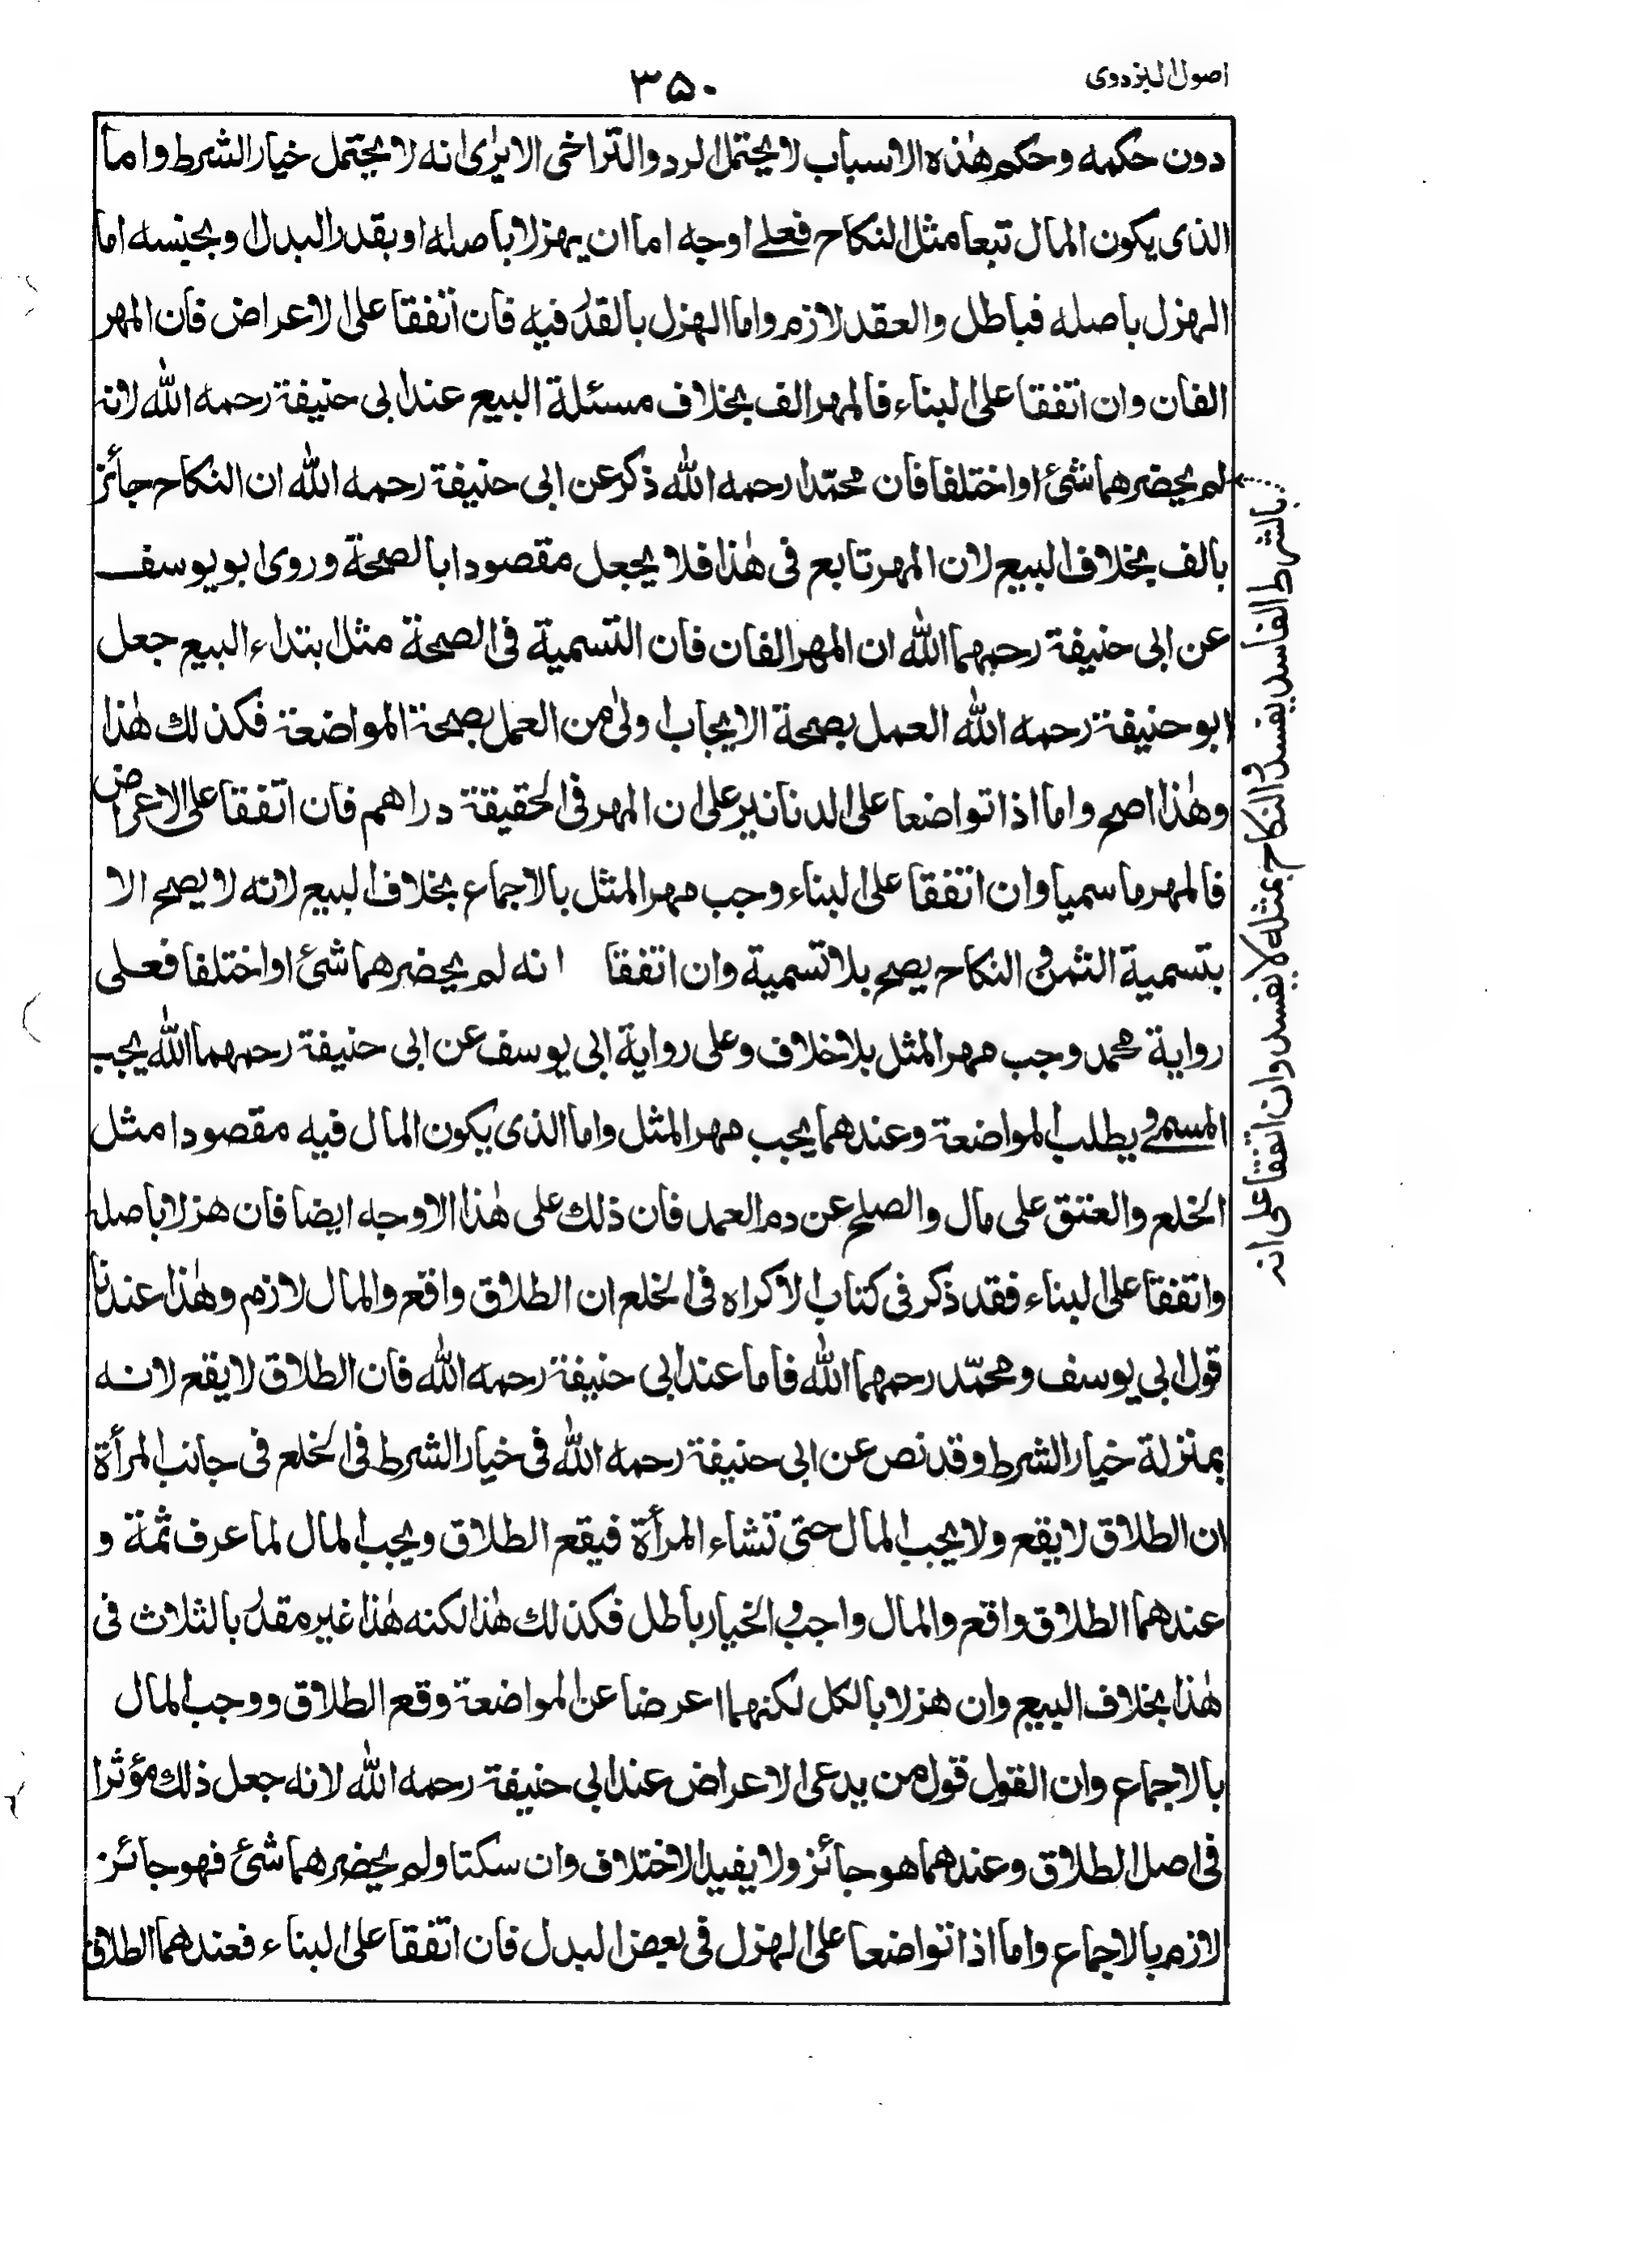 اصول البزدوی
۳۵۰
دون حكمه وحكم هٰذه الاسباب لا يحتمل الرد والتراخى الا يرٰى انه لا يحتمل خيار الشرط واما
الذى يكون المال تبعا مثل النكاح فعلے اوجه اما ان يهزلا باصله او بقدر البدل وبجنسه اما
الهزل باصله فباطل والعقد لازم واما الهزل بالقدر فيه فان اتفقا على الاعراض فان المهر
الفان وان اتفقا على البناء فالمهر الف بخلاف مسئلة البيع عند ابى حنيفة رحمه الله لانه
لم يحضرهما شئ او اختلفا فان محمّدا رحمه الله ذكر عن ابى حنيفة رحمه الله ان النكاح جائز
بالف بخلاف البيع لان المهر تابع فى هٰذا فلا يجعل مقصودا بالصحة وروى ابو يوسف
عن ابى حنيفة رحمهما الله ان المهر الفان فان التسمية فى الصحة مثل ابتداء البيع جعل
ابو حنيفة رحمه الله العمل بصحة الايجاب اولىٰ من العمل بصحة المواضعة فكذلك هٰذا
وهٰذا اصح واما اذا تواضعا على الدنانير على ان المهر فى الحقيقة دراهم فان اتفقا على الاعراض
فالمهر ما سميا وان اتفقا على البناء وجب مهر المثل بالاجماع بخلاف البيع لانه لا يصح الا
بتسمية الثمن والنكاح يصح بلا تسمية وان اتفقا انه لم يحضرهما شئ او اختلفا فعلى
رواية محمد وجب مهر المثل بلا خلاف وعلى رواية ابى يوسف عن ابى حنيفة رحمهما الله يجب
المسمى ويطلب المواضعة وعندهما يجب مهر المثل واما الذى يكون المال فيه مقصودا مثل
الخلع والعتق على مال والصلح عن دم العمد فان ذلك على هٰذا الاوجه ايضا فان هزلا باصله
واتفقا على البناء فقد ذكر فى كتاب الاكراه فى الخلع ان الطلاق واقع والمال لازم وهٰذا عندنا
قول ابى يوسف ومحمّد رحمهما الله فاما عند ابى حنيفة رحمه الله فان الطلاق لا يقع لانه
بمنزلة خيار الشرط وقد نص عن ابى حنيفة رحمه الله فى خيار الشرط فى الخلع فى جانب المرأة
ان الطلاق لا يقع ولا يجب المال حتى تشاء المرأة فيقع الطلاق ويجب المال لما عرف ثمة و
عندهما الطلاق واقع والمال واجب والخيار باطل فكذلك هٰذا لكنه هٰذا غير مقدر بالثلاث فى
هٰذا بخلاف البيع وان هزلا بالكل لكنهما اعرضا عن المواضعة وقع الطلاق ووجب المال
بالاجماع وان القول قول من يدعى الاعراض عند ابى حنيفة رحمه الله لانه جعل ذلك مؤثرا
فى اصل الطلاق وعندهما هو جائز ولا يفيد الاختلاف وان سكتا ولم يحضرهما شئ فهو جائز
لازم بالاجماع واما اذا تواضعا على الهزل فى بعض البدل فان اتفقا على البناء فعندهما الطلاق
بالشرط الفاسد يفسد والنكاح بمثله لا يفسد وان اتفقا على انه